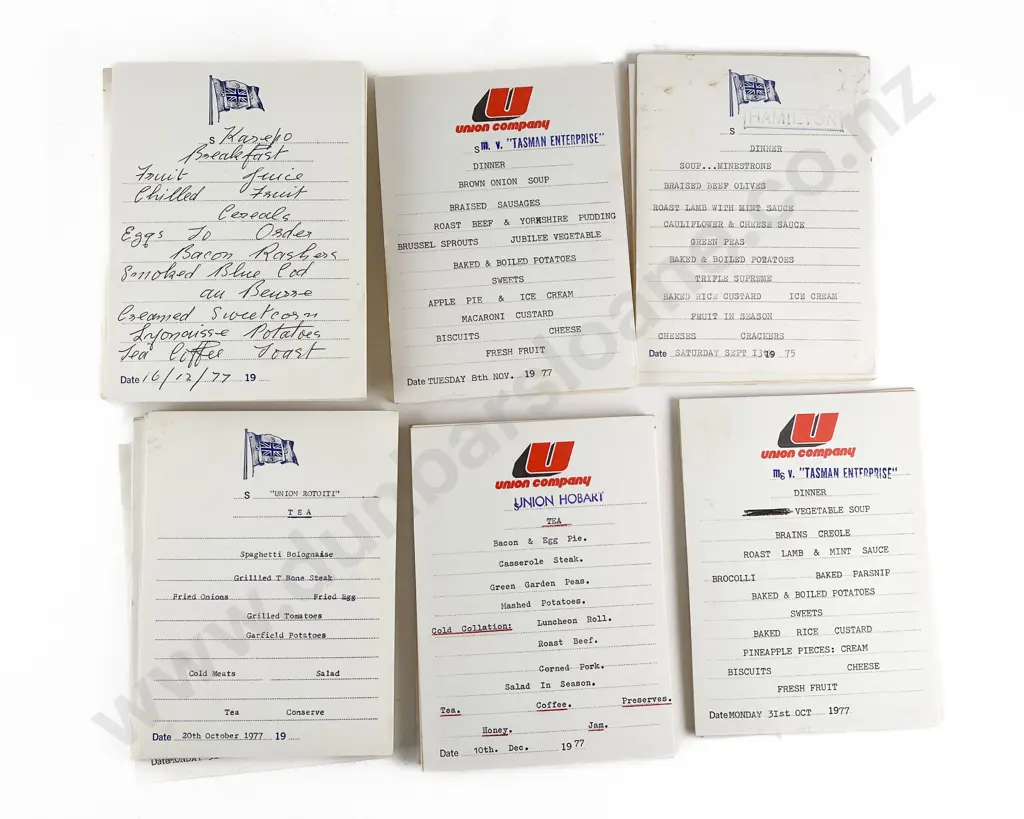 S Karepo
Breakfast
Fruit Juice
Chilled Fruit
Cereals
Eggs To Order
Bacon Rashers
Smoked Blue Cod
au Beurre
Creamed Sweetcorn
Lyonaisse Potatoes
Tea Coffee Toast
Date 16/12/77 19
U
union company
S m. v. "TASMAN ENTERPRISE"
DINNER
BROWN ONION SOUP
BRAISED SAUSAGES
ROAST BEEF & YORKSHIRE PUDDING
BRUSSEL SPROUTS JUBILEE VEGETABLE
BAKED & BOILED POTATOES
SWEETS
APPLE PIE & ICE CREAM
MACARONI CUSTARD
BISCUITS CHEESE
FRESH FRUIT
Date TUESDAY 8th NOV. 19 77
S HAMILTON
DINNER
SOUP...MINESTRONE
BRAISED BEEF OLIVES
ROAST LAMB WITH MINT SAUCE
CAULIFLOWER & CHEESE SAUCE
GREEN PEAS
BAKED & BOILED POTATOES
TRIFLE SUPREME
BAKED RICE CUSTARD ICE CREAM
FRUIT IN SEASON
CHEESES CRACKERS
Date SATURDAY SEPT 13 19 75
S "UNION ROTOITI"
TEA
Spaghetti Bolognaise
Grillled T Bone Steak
Fried Onions Fried Egg
Grilled Tomatoes
Garfield Potatoes
Cold Meats Salad
Tea Conserve
Date 20th October 1977 19
Date MONDAY
U
union company
UNION HOBART
TEA
Bacon & Egg Pie.
Casserole Steak.
Green Garden Peas.
Mashed Potatoes.
Cold Collation: Luncheon Roll.
Roast Beef.
Corned Pork.
Salad In Season.
Tea. Coffee. Preserves.
Honey. Jam.
Date 10th. Dec. 19 77
U
union company
mS v. "TASMAN ENTERPRISE"
DINNER
VEGETABLE SOUP
BRAINS CREOLE
ROAST LAMB & MINT SAUCE
BROCOLLI BAKED PARSNIP
BAKED & BOILED POTATOES
SWEETS
BAKED RICE CUSTARD
PINEAPPLE PIECES: CREAM
BISCUITS CHEESE
FRESH FRUIT
Date MONDAY 31st OCT 1977
www.dunbarsloane.co.nz